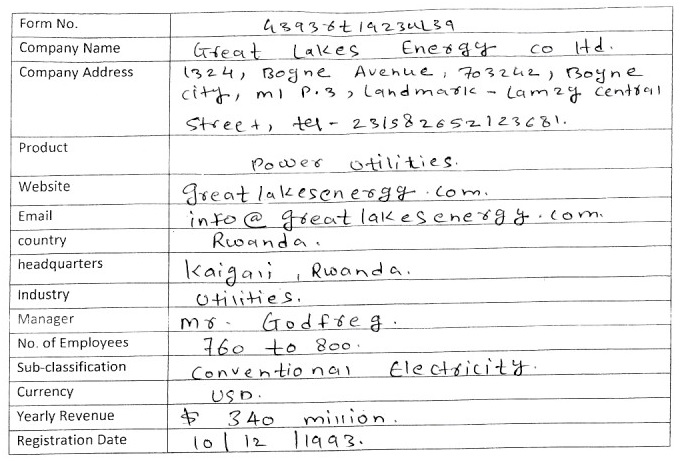 Form No. 43936t19234L39
Company Name Great Lakes Energy co ltd.
Company Address 1324, Boyne Avenue, 703242, Boyne
city, MI P.3, Landmark - Lamzy central
Street, tel - 231582652123681.
Product Power Utilities.
Website greatlakesenergy.com.
Email info@greatlakesenergy.com.
country Rwanda.
headquarters Kaigaii, Rwanda.
Industry Utilities.
Manager Mr. Godfreg.
No. of Employees 760 to 800.
Sub-classification Conventional Electricity.
Currency USD.
Yearly Revenue $ 340 million.
Registration Date 10/12/1993.